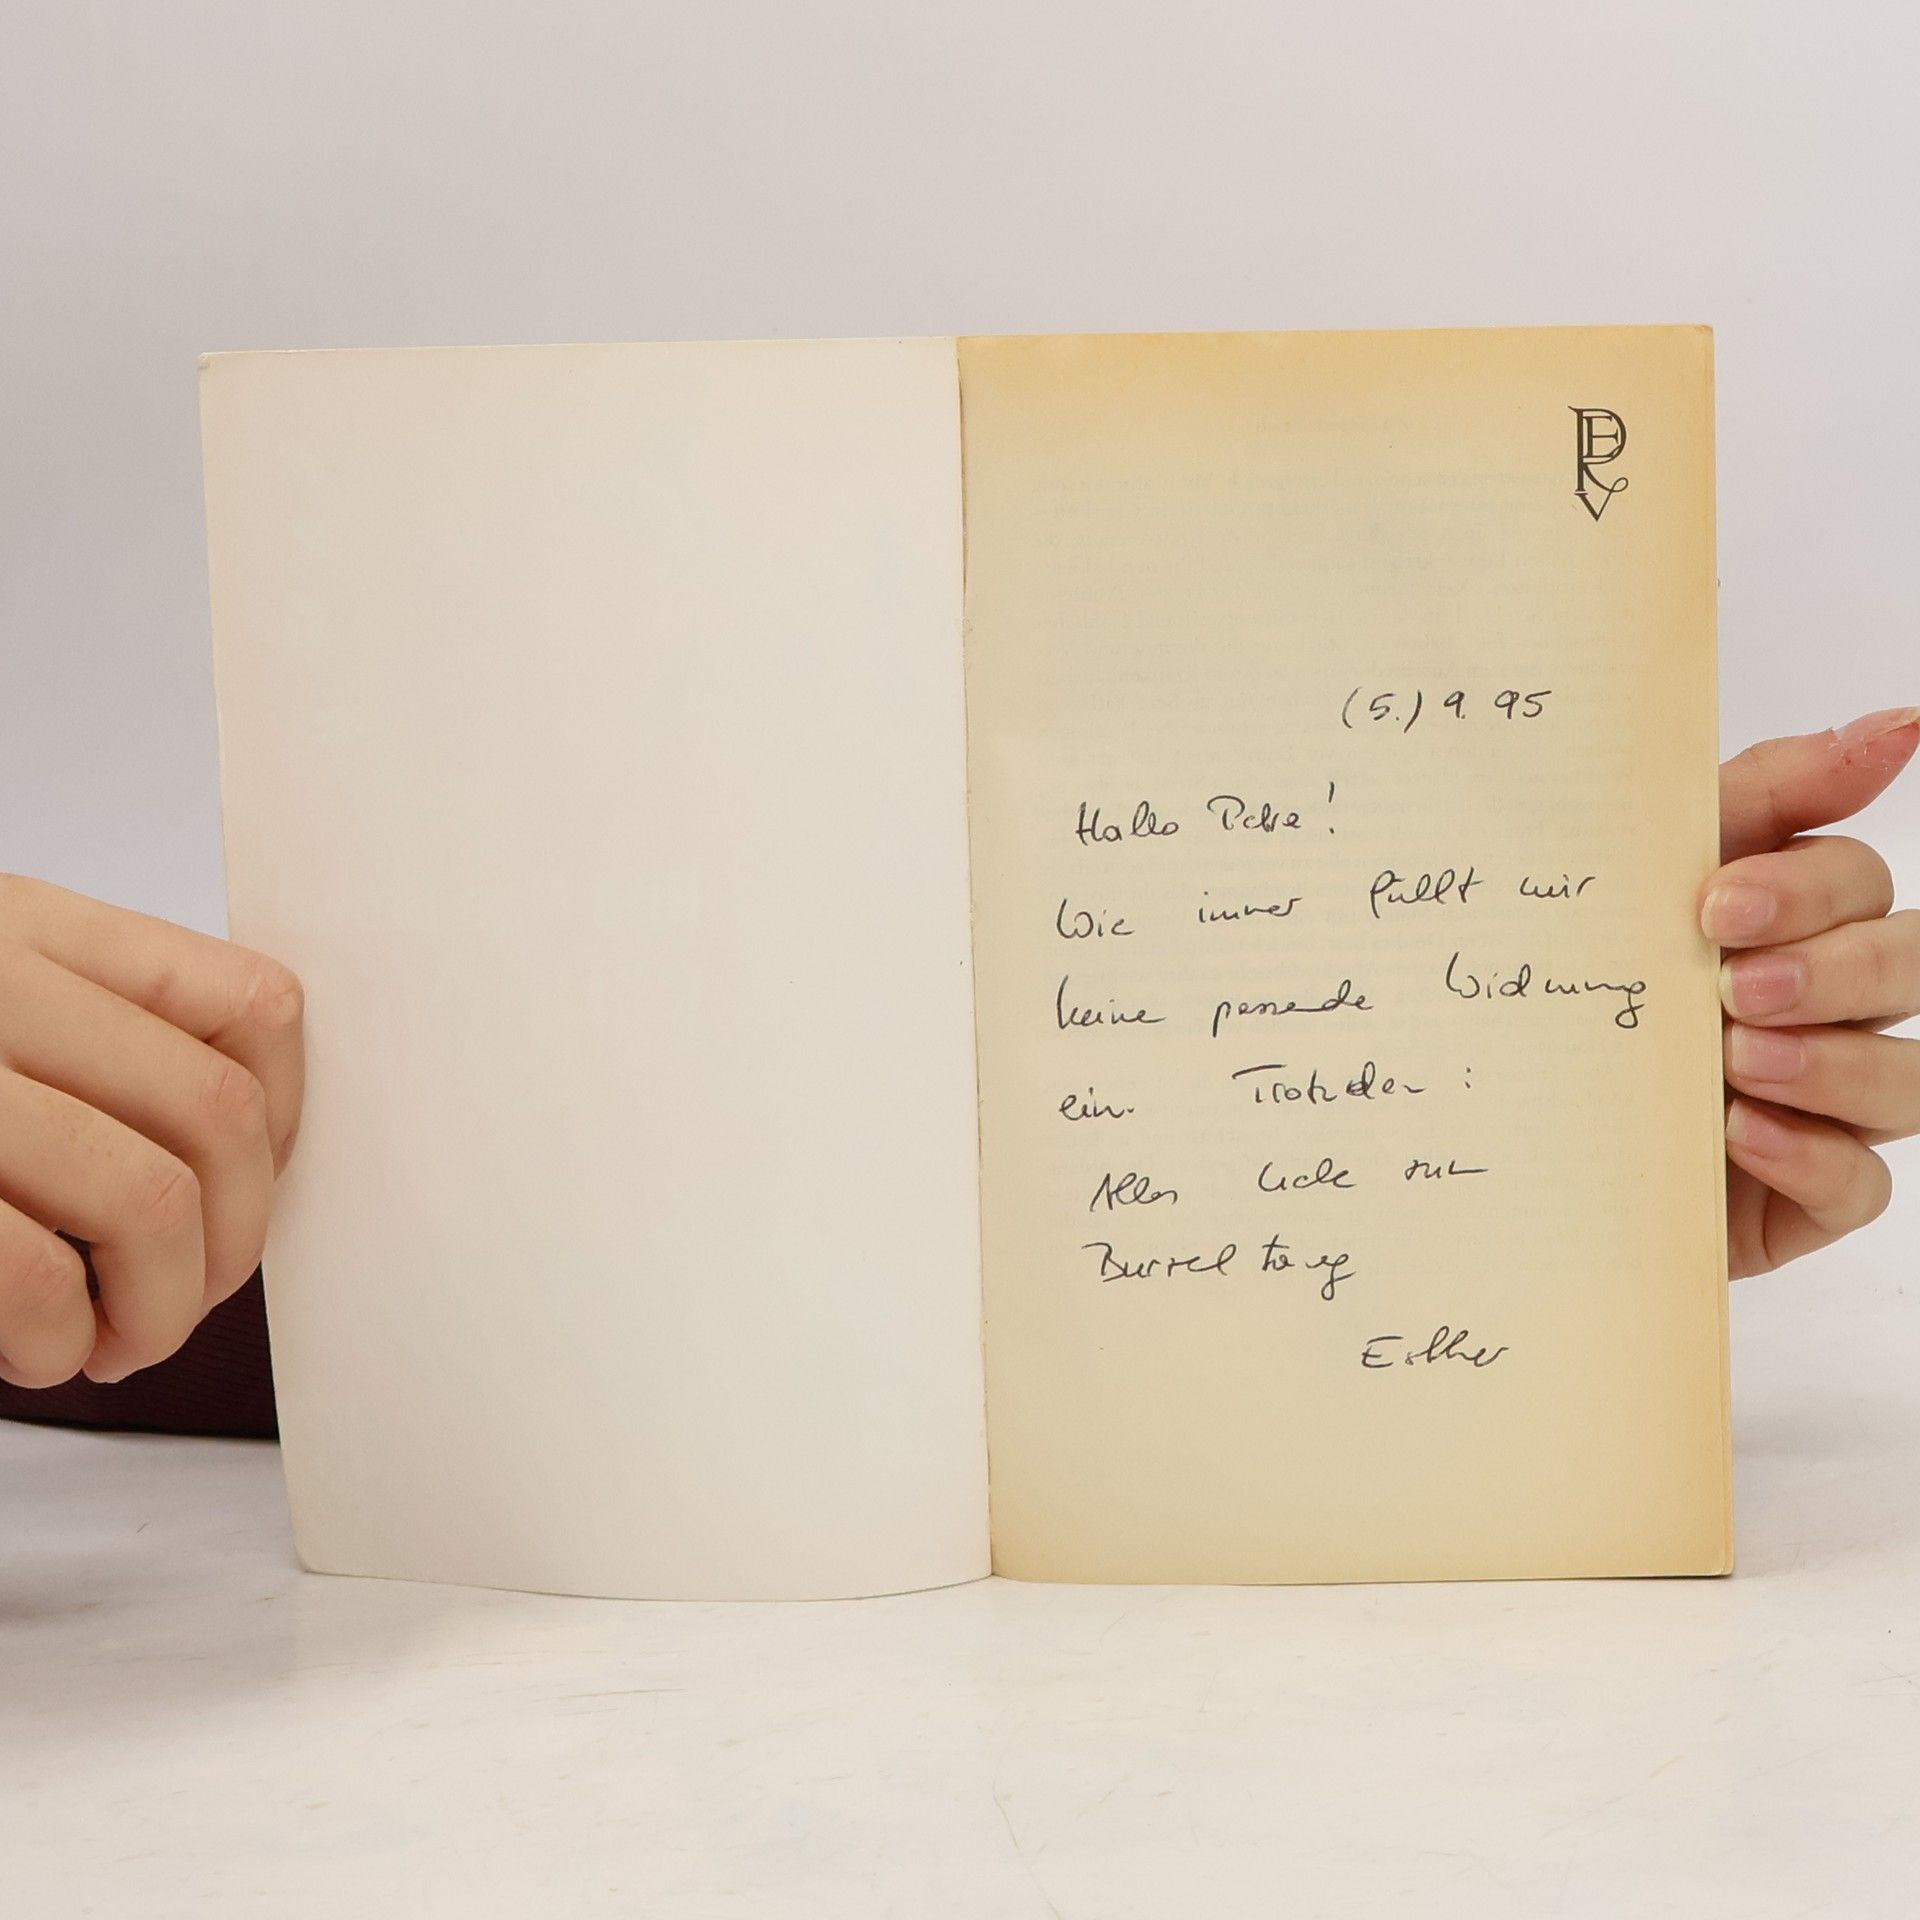 PERV
(5.) 9. 95
Hallo Petra!
Wie immer fällt mir
keine passende Widmung
ein. Trotzdem:
Alles Liebe zum
Burzeltag
Esther